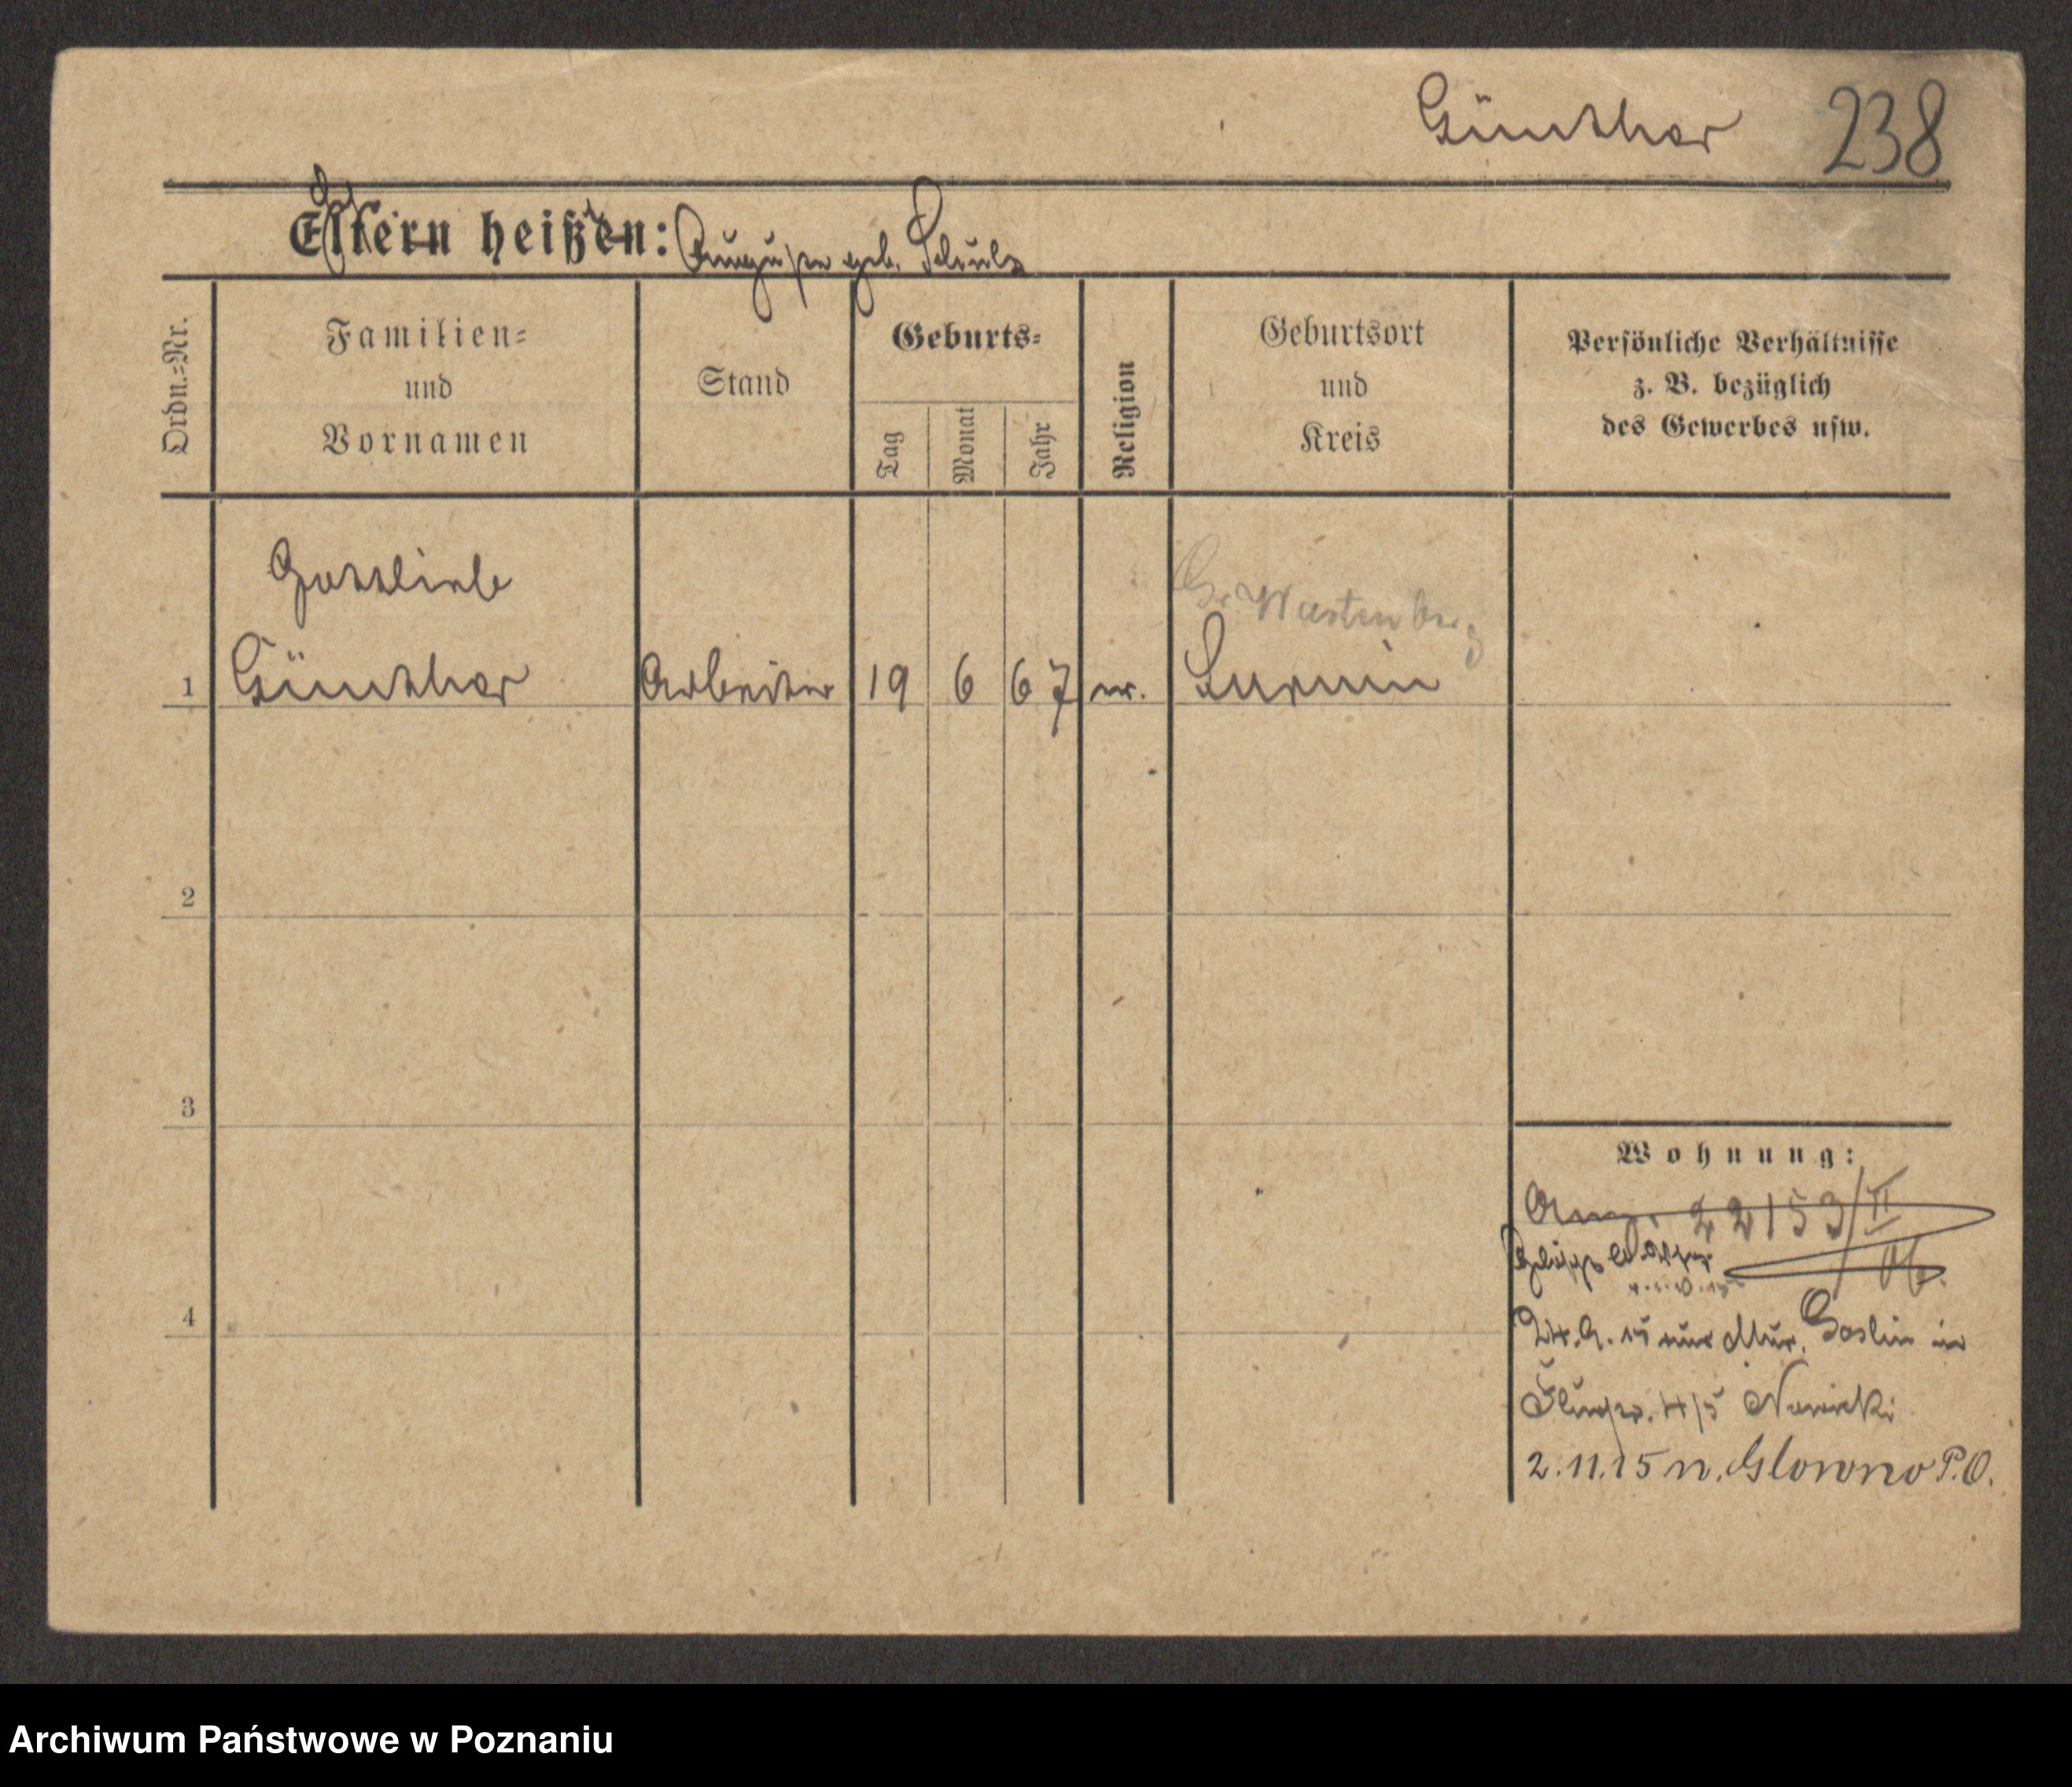 Günther 238
Eltern heißen: Auguste geb. Schulz
Ordn.-Nr.
Familien-
und
Vornamen
Stand
Geburts-
Tag
Monat
Jahr
Religion
Geburtsort
und
Kreis
Persönliche Verhältnisse
z. B. bezüglich
des Gewerbes usw.
Gottlieb
Gr. Wartenberg
1 Günther Arbeiter 19 6 67 ev.
2
3
4
Wohnung:
22153/II
24.9.15 aus Mur. Goslin in
4/5 Nowicki
2.11.15 n. Glowno P.O.
Archiwum Państwowe w Poznaniu